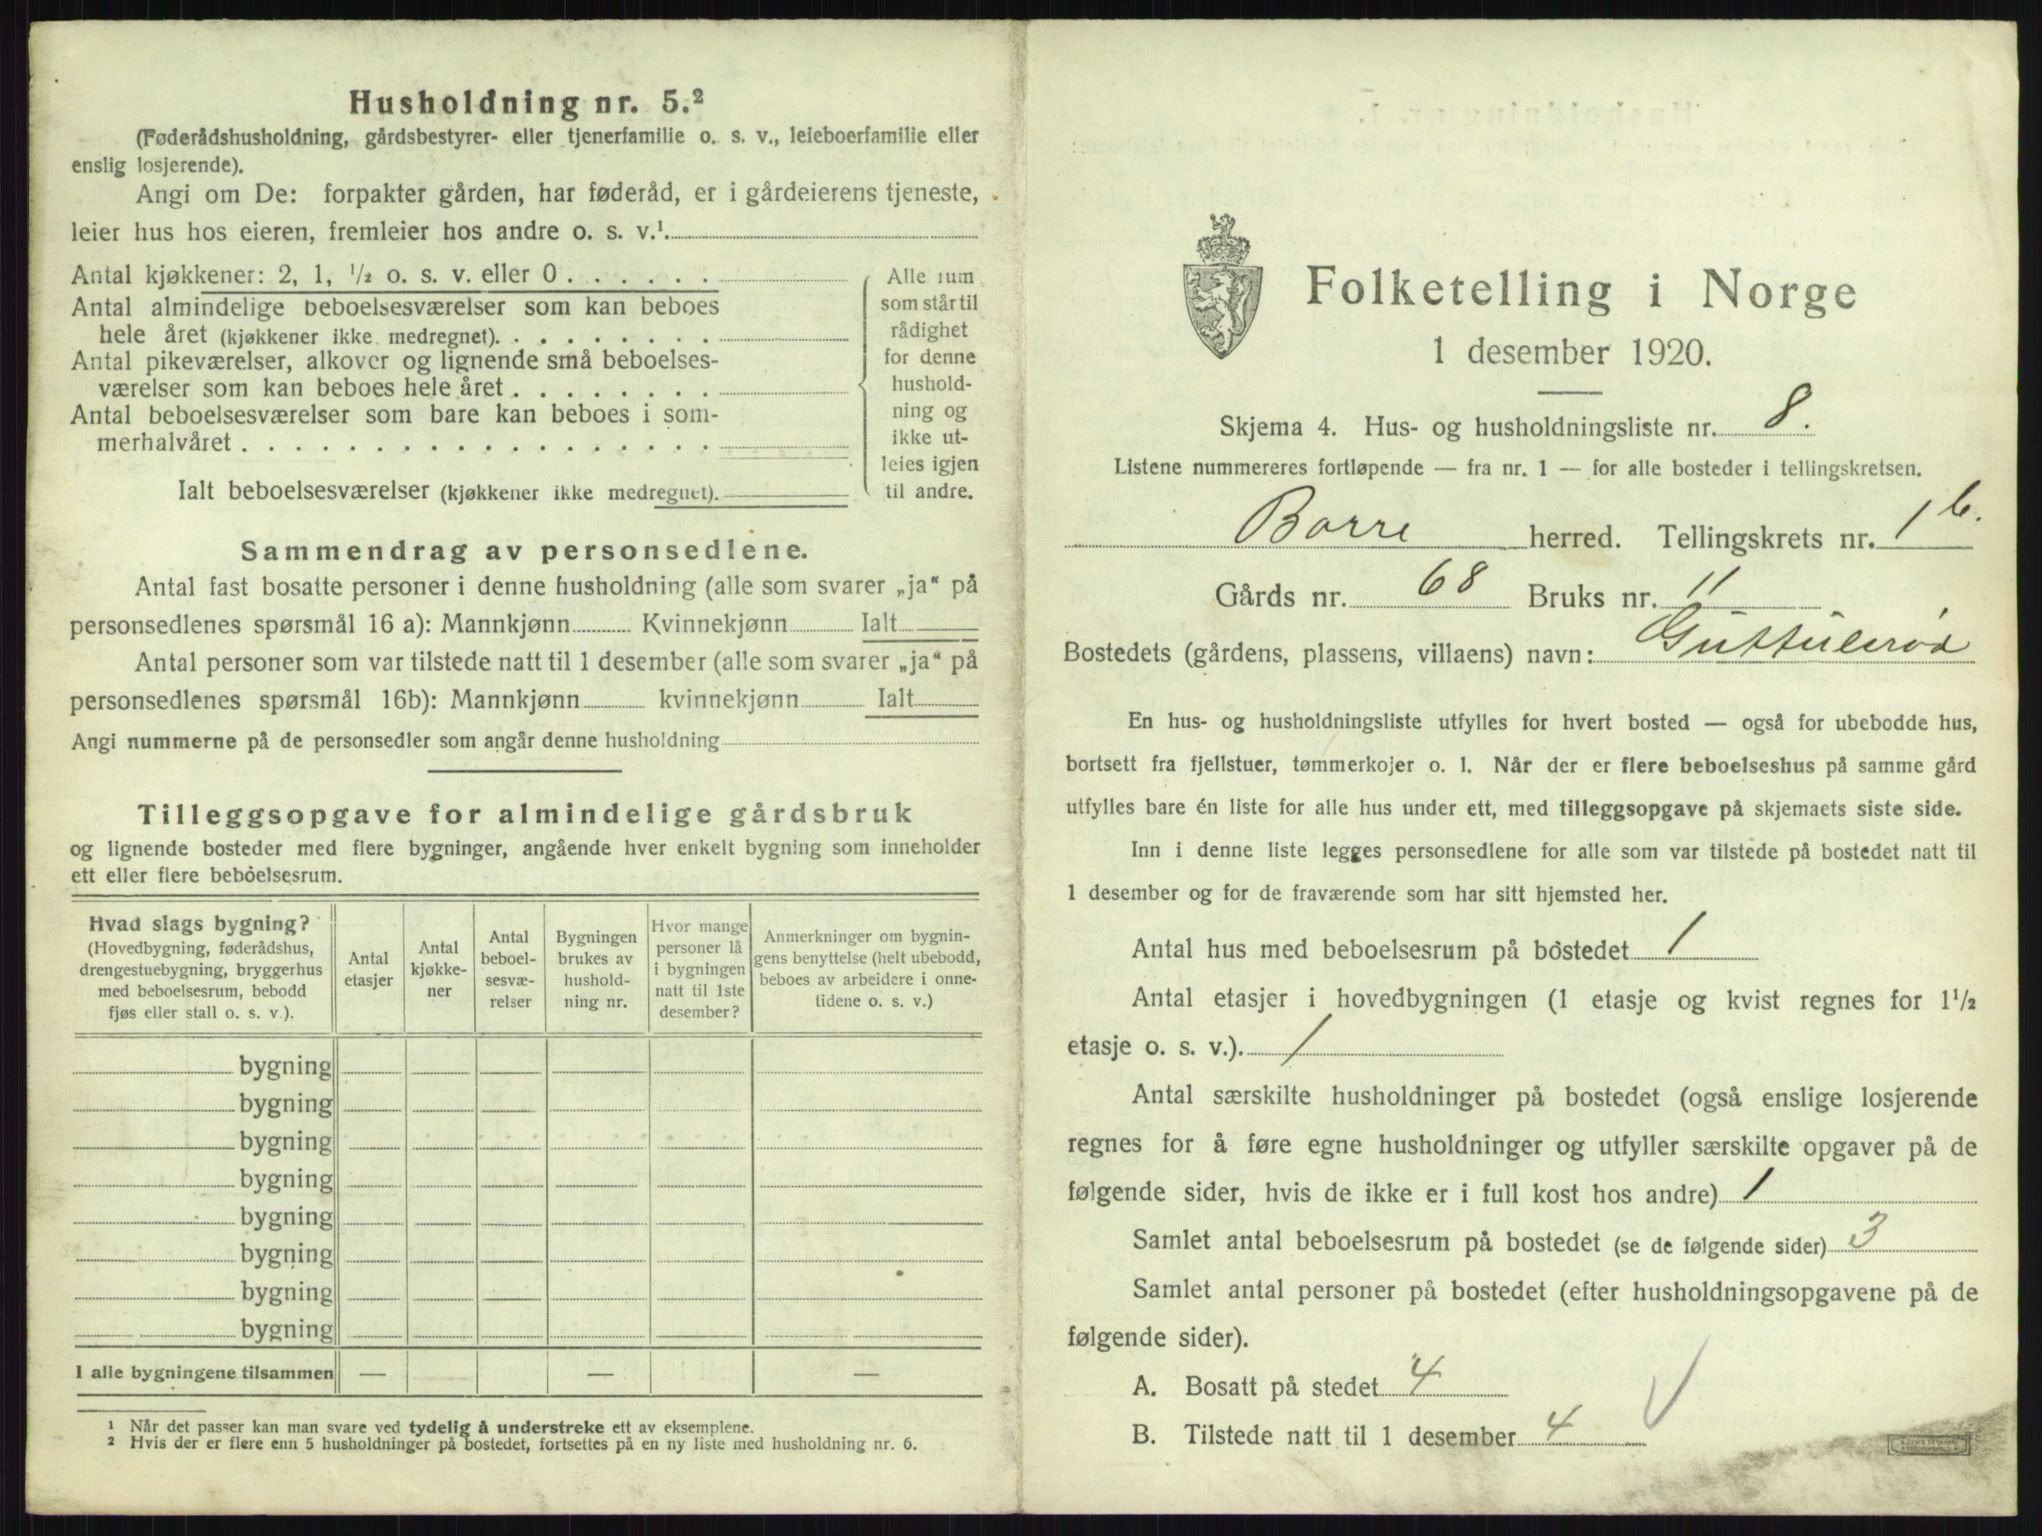 Husholdning nr. 5.²
(Føderådshusholdning, gårdsbestyrer- eller tjenerfamilie o. s. v., leieboerfamilie eller
enslig losjerende).
Angi om De: forpakter gården, har føderåd, er i gårdeierens tjeneste,
leier hus hos eieren, fremleier hos andre o. s. v.¹
Antal kjøkkener: 2, 1, ½ o. s. v. eller 0
Antal almindelige beboelsesværelser som kan beboes
hele året (kjøkkener ikke medregnet).
Antal pikeværelser, alkover og lignende små beboelses-
værelser som kan beboes hele året
Antal beboelsesværelser som bare kan beboes i som-
merhalvåret
Ialt beboelsesværelser (kjøkkener ikke medregnet).
Alle rum
som står til
rådighet
for denne
hushold-
ning og
ikke ut-
leies igjen
til andre.
Sammendrag av personsedlene.
Antal fast bosatte personer i denne husholdning (alle som svarer „ja“ på
personsedlenes spørsmål 16 a): Mannkjønn Kvinnekjønn Ialt
Antal personer som var tilstede natt til 1 desember (alle som svarer „ja“ på
personsedlenes spørsmål 16b): Mannkjønn kvinnekjønn Ialt
Angi nummerne på de personsedler som angår denne husholdning
Tilleggsopgave for almindelige gårdsbruk
og lignende bosteder med flere bygninger, angående hver enkelt bygning som inneholder
ett eller flere beboelsesrum.
Hvad slags bygning?
(Hovedbygning, føderådshus,
drengestuebygning, bryggerhus
med beboelsesrum, bebodd
fjøs eller stall o. s. v.).
Antal
etasjer
Antal
kjøkke-
ner
Antal
beboel-
sesvæ-
relser
Bygningen
brukes av
hushold-
ning nr.
Hvor mange
personer lå
i bygningen
natt til 1ste
desember?
Anmerkninger om bygnin-
gens benyttelse (helt ubebodd,
beboes av arbeidere i onne-
tidene o. s. v.)
bygning
bygning
bygning
bygning
bygning
bygning
bygning
bygning
I alle bygningene tilsammen — — —
¹ Når det passer kan man svare ved tydelig å understreke ett av eksemplene.
² Hvis der er flere enn 5 husholdninger på bostedet, fortsettes på en ny liste med husholdning nr. 6.
Folketelling i Norge
1 desember 1920.
Skjema 4. Hus- og husholdningsliste nr. 8.
Listene nummereres fortløpende — fra nr. 1 — for alle bosteder i tellingskretsen.
Borre herred. Tellingskrets nr. 1 b.
Gårds nr. 68 Bruks nr. 11
Bostedets (gårdens, plassens, villaens) navn: Guttulsrød
En hus- og husholdningsliste utfylles for hvert bosted — også for ubebodde hus,
bortsett fra fjellstuer, tømmerkojer o. l. Når der er flere beboelseshus på samme gård
utfylles bare én liste for alle hus under ett, med tilleggsopgave på skjemaets siste side.
Inn i denne liste legges personsedlene for alle som var tilstede på bostedet natt til
1 desember og for de fraværende som har sitt hjemsted her.
Antal hus med beboelsesrum på bostedet 1
Antal etasjer i hovedbygningen (1 etasje og kvist regnes for 1½
etasje o. s. v.). 1
Antal særskilte husholdninger på bostedet (også enslige losjerende
regnes for å føre egne husholdninger og utfyller særskilte opgaver på de
følgende sider, hvis de ikke er i full kost hos andre) 1
Samlet antal beboelsesrum på bostedet (se de følgende sider) 3
Samlet antal personer på bostedet (efter husholdningsopgavene på de
følgende sider).
A. Bosatt på stedet 4
B. Tilstede natt til 1 desember 4